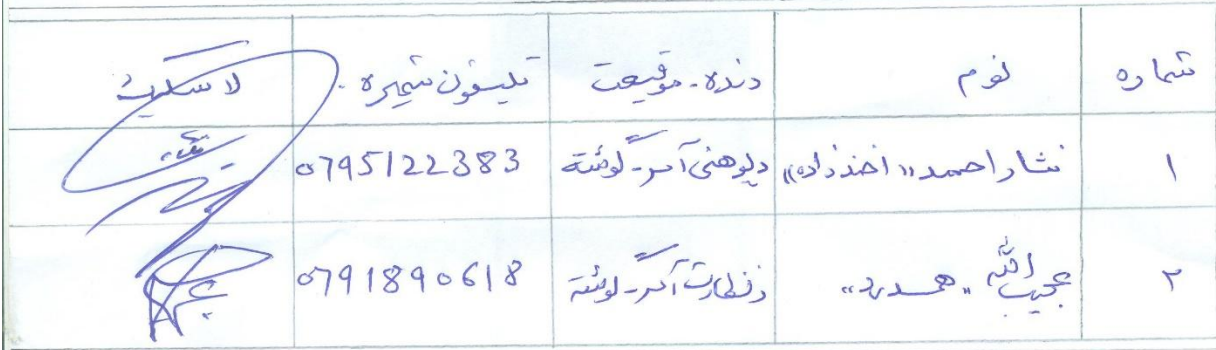 شماره نوم دنده - موقیعت تلیفون شمیره لاسلیک
۱ نثار احمد «اخندزاده» دپوهنی آمر - لوئته 0795122383
۲ عجیب الله «همدرد» دنظارت آمر - لوئته 0791890618